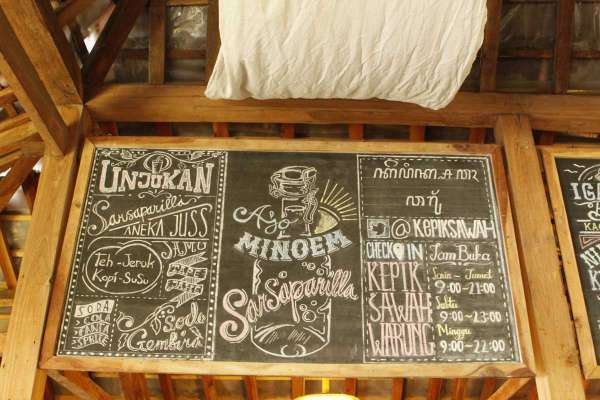 UNJUKAN
Sarsaparilla
ANEKA JUSS
JAMU
Teh-Jeruk
Kopi-Susu
SODA
COLA
FANTA
SPRITE
Soda
Gembira
Ayo
MINOEM
Sarsaparilla
@KEPIKSAWAH
CHECK IN
KEPIK
SAWAH
WARUNG
Jam Buka
Senin - Jumat
9:00-21:00
Sabtu
9:00-23:00
Minggu
9:00-22:00